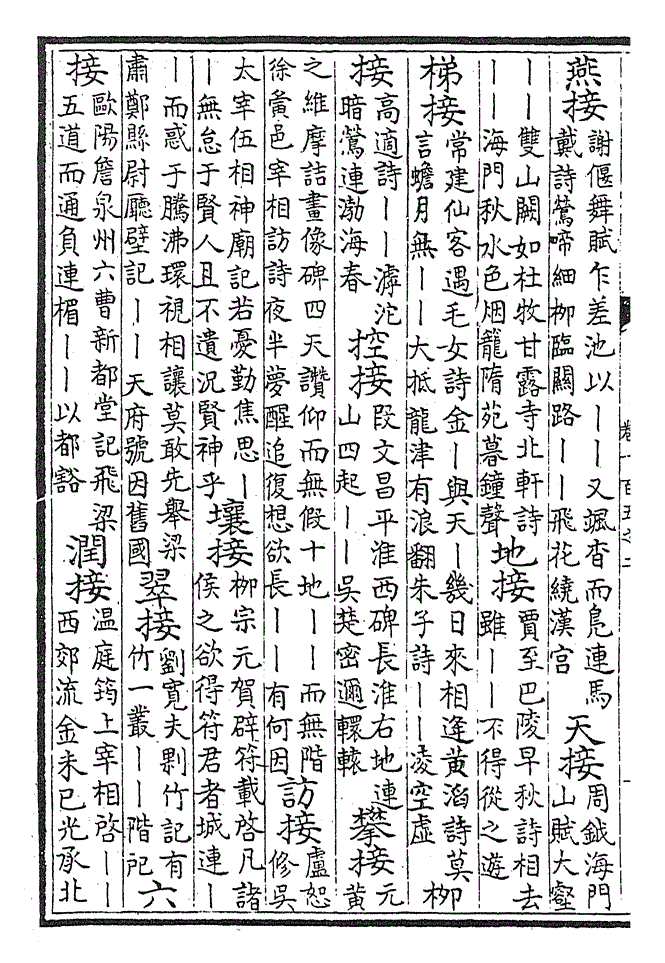 燕接
謝偃舞賦乍差池以丨丨又颯沓而鳧連馬
戴詩鶯啼細柳臨關路丨丨飛花繞漢宫
天接
周鉞海門
山賦大壑
丨丨雙山闕如杜牧甘露寺北軒詩
丨丨海門秋水色烟籠隋苑暮鐘聲
地接
賈至巴陵早秋詩相去
雖丨丨不得從之遊
梯接
常建仙客遇毛女詩金丨與天丨幾日來相逢黄滔詩莫
言蟾月無丨丨大抵龍津有浪翻朱子詩丨丨凌空虚
柳
接
高適詩丨丨滹沱
暗鶯連渤海春
控接
段文昌平淮西碑長淮右地連
山四起丨丨吳楚密邇轘轅
攀接
元
黄
之維摩詰畫像碑四天讚仰而無假十地丨丨而無階
徐夤邑宰相訪詩夜半夢醒追復想欲長丨丨有何因
訪接
盧恕
修吳
太宰伍相神廟記若憂勤焦思丨
丨無怠于賢人且不遺況賢神乎
壤接
柳宗元賀辟符載啓凡諸
侯之欲得符君者城連丨
丨而惑于騰沸環視相讓莫敢先舉梁
肅鄭縣尉廳壁記丨丨天府號因舊國
翠接
劉寬夫剽竹記有
竹一叢丨丨階戺
六
接
歐陽詹泉州六曹新都堂記飛梁
五道而通負連楣丨丨以都豁
潤接
温庭筠上宰相啓丨丨
西郊流金未已光承北